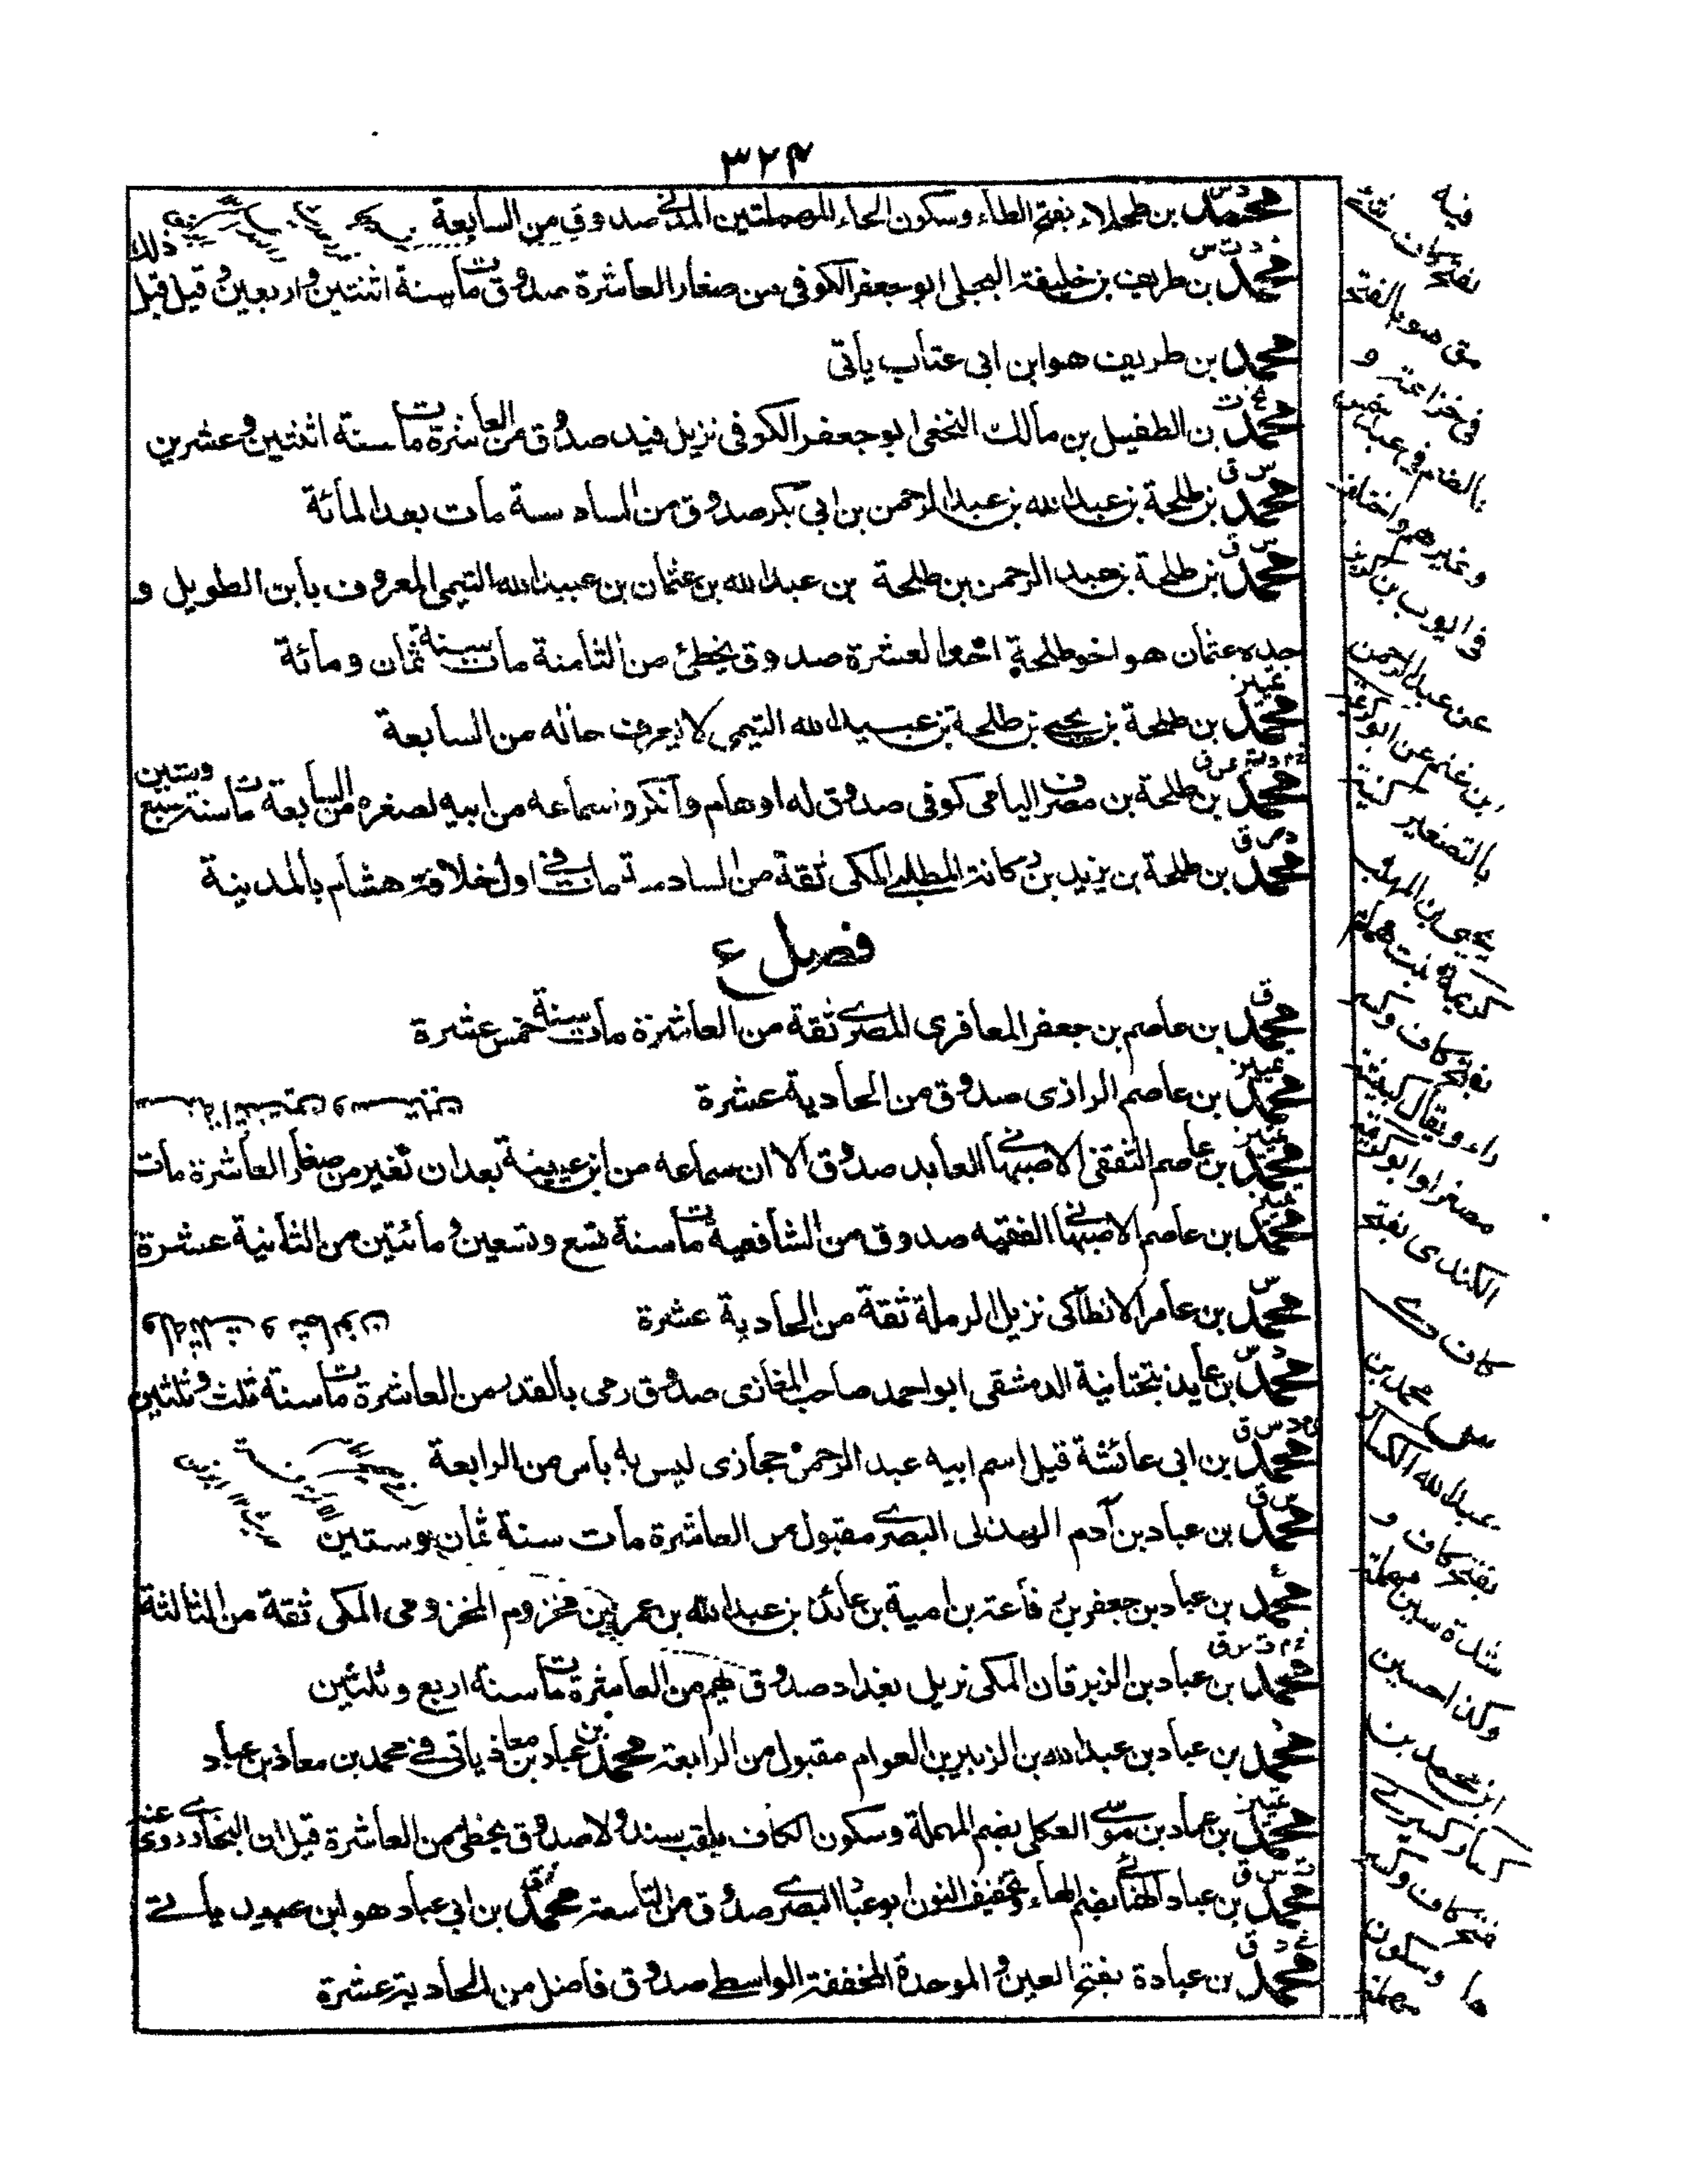 ٣٢٤
محمد بن طحلاء بفتح الطاء وسكون الحاء المهملتين المدني صدوق من السابعة
د ت س
محمد بن طريف بن خليفة البجلي ابو جعفر الكوفي من صغار العاشرة صدوق مات سنة اثنتين واربعين وقيل قبل ذلك
محمد بن طريف هو ابن ابي عتاب يأتي
محمد بن الطفيل بن مالك النخعي ابو جعفر الكوفي نزيل فيد صدوق من العاشرة مات سنة اثنتين وعشرين
س ق
محمد بن طلحة بن عبد الله بن عبد الرحمن بن ابي بكر صدوق من السادسة مات بعد المائة
س ق
محمد بن طلحة بن عبد الرحمن بن طلحة بن عبد الله بن عثمان بن عبيد الله التيمي المعروف بابن الطويل و
جده عثمان هو اخو طلحة احد العشرة صدوق يخطئ من الثامنة مات سنة ثمان ومائة
تمييز
محمد بن طلحة بن يحيى بن طلحة بن عبيد الله التيمي لا يعرف حاله من السابعة
محمد بن طلحة بن مصرف اليامي كوفي صدوق له اوهام وانكروا سماعه من ابيه لصغره من السابعة مات سنة سبع وستين
د ص ق
محمد بن طلحة بن يزيد بن ركانة المطلبي المكي ثقة من السادسة مات في اول خلافة هشام بالمدينة
فصل ع
محمد بن عاصم بن جعفر المعافري المصري ثقة من العاشرة مات سنة خمس عشرة
تمييز
محمد بن عاصم الرازي صدوق من الحادية عشرة
تمييز
محمد بن عاصم الثقفي الاصبهاني العابد صدوق الا ان سماعه من ابن عيينة بعد ان تغير من صغار العاشرة مات
سنة اثنتين وستين
تمييز
محمد بن عاصم الاصبهاني الفقيه صدوق من الشافعية مات سنة تسع وتسعين ومائتين من الثانية عشرة
س
محمد بن عامر الانطاكي نزيل الرملة ثقة من الحادية عشرة
د س
محمد بن عايذ بتحتانية الدمشقي ابو احمد صاحب المغازي صدوق رمي بالقدر من العاشرة مات سنة ثلث وثلثين
وله ثلث وثمانون
م د س ق
محمد بن ابي عائشة قيل اسم ابيه عبد الرحمن حجازي ليس به باس من الرابعة
س ق
محمد بن عباد بن آدم الهذلي البصري مقبول من العاشرة مات سنة ثمان وستين
ع
محمد بن عباد بن جعفر بن رفاعة بن امية بن عائذ بن عبد الله بن عمر بن مخزوم المخزومي المكي ثقة من الثالثة
خ م ت س ق
محمد بن عباد بن الزبرقان المكي نزيل بغداد صدوق يهم من العاشرة مات سنة اربع وثلثين
محمد بن عباد بن عبد الله بن الزبير بن العوام مقبول من الرابعة محمد بن عباد بن معاذ ياتي في محمد بن معاذ بن عباد
تمييز
محمد بن عباد بن موسى العكلي بضم المهملة وسكون الكاف يلقب سندولا صدوق يخطئ من العاشرة قيل ان البخاري روى عنه
ت س ق
محمد بن عباد الهنائي بضم الهاء وتخفيف النون ابو عباد البصري صدوق من التاسعة محمد بن ابي عباد هو ابن عبيد ياتي
خ د ق
محمد بن عبادة بفتح العين والموحدة المخففة الواسطي صدوق فاضل من الحادية عشرة
فيه
بفتح كاف
هو بالفتح
في خزاعة و
بالضم في عبد
وغيرهم واختلف
في ايوب بن كريز
عن عبد الرحمن
بن غنم عن
بالتصغير
يحيى بن المهلب
كريمة بنت همام
بفتح كاف وكسر
راء ويقال
مصغرا وابو
الكندي بفتح
كاف
محمد بن
عبد الله
بفتح كاف و
شدة سين مهملة
وكذا حسين
ابن محمد بن
فتح كاف
وسكون
مهملة